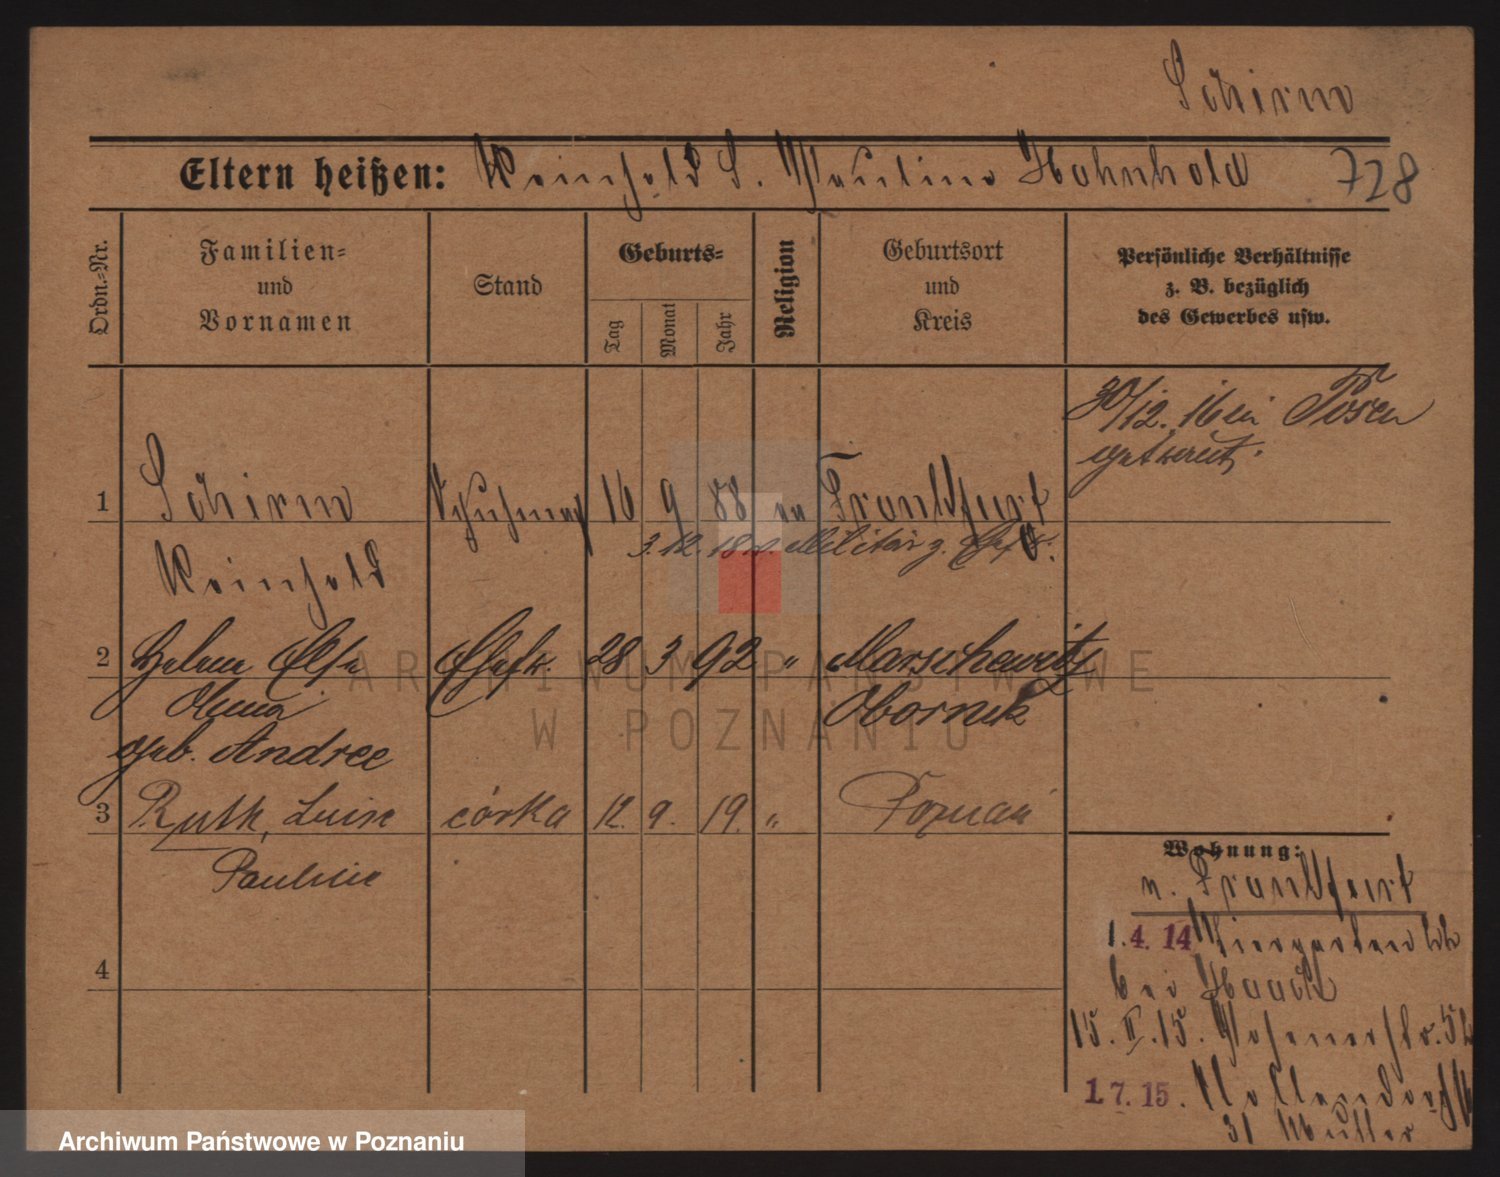 Schirm
Eltern heißen: Reinhold S. Pauline Hahnhold 728
Ordn.-Nr.
Familien-
und
Vornamen
Stand
Geburts-
Tag
Monat
Jahr
Religion
Geburtsort
und
Kreis
Persönliche Verhältnisse
z. B. bezüglich
des Gewerbes usw.
30/12. 16 in Posen
getraut.
1 Schirm 16 9 88 ev Frankfurt
3.12.18 Militär g. O.
Reinhold
2 Helene Else Ehefr. 28 3 92 " Marschewitz
Anna Obornik
geb. Andree
3 Ruth, Luise córka 12. 9. 19. " Poznań
Pauline
4
Wohnung:
n. Frankfurt
1. 4. 14 Tiergarten
bei Haack
15. II. 15. Posenerstr. 52
1. 7. 15.
31 Müller
ARCHIWUM PAŃSTWOWE
W POZNANIU
Archiwum Państwowe w Poznaniu